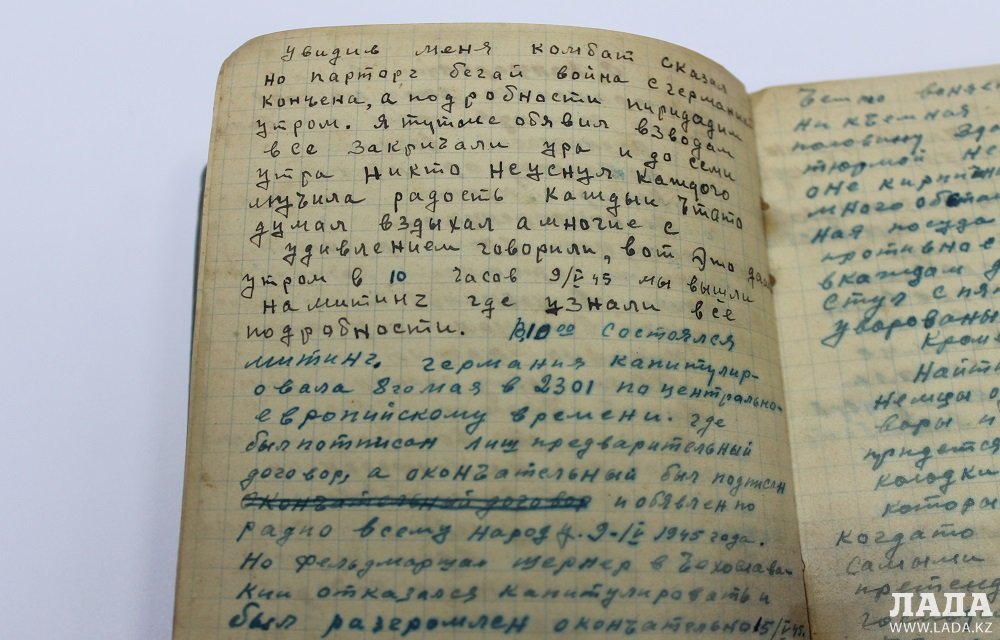 увидив меня комбат сказал
но парторг бегай война с германией
конъена, а подробности пиридадим
утром. Я туто же обявил взводам
все закричали ура и до семи
утра никто неуснул каждого
муъила радость каждый ътото
думал вздыхал а многие с
удивлением говорили, вот это да
утром в 10 часов 9/V 45 мы вышли
на митинг где узнали все
подробности. В 10 00 состоялся
митинг. германия капитулир-
овала 8 го мая в 2301 по центрально-
европийскому времени. где
был потписан лиш предварительный
договор, а оконъательный был подписан
оконъательный договор и обявлен по
радио всему народу. 9-V 1945 года.
Но фельдмаршал шернер в ъехослава-
кии отказался капитулировать и
был разгромлен оконъательно 15/V 45.
никъемная
половину
тюрмой не
оне кирпиъ
много
ная посуда
противно с
в каждам
стул с пя
Кроме
Найти
немцы о
вары и
придется
колодки
которы
когдато
самыми
претенд
ЛАДА
WWW.LADA.KZ